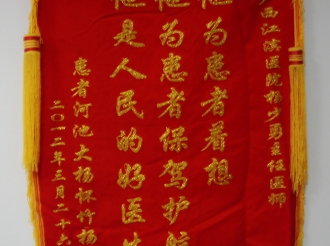 西江滨医院杨少勇主任医师
为患者着想
为患者保驾护航
是人民的好医生
患者河池大杨怀竹杨
二〇一二年三月二十六